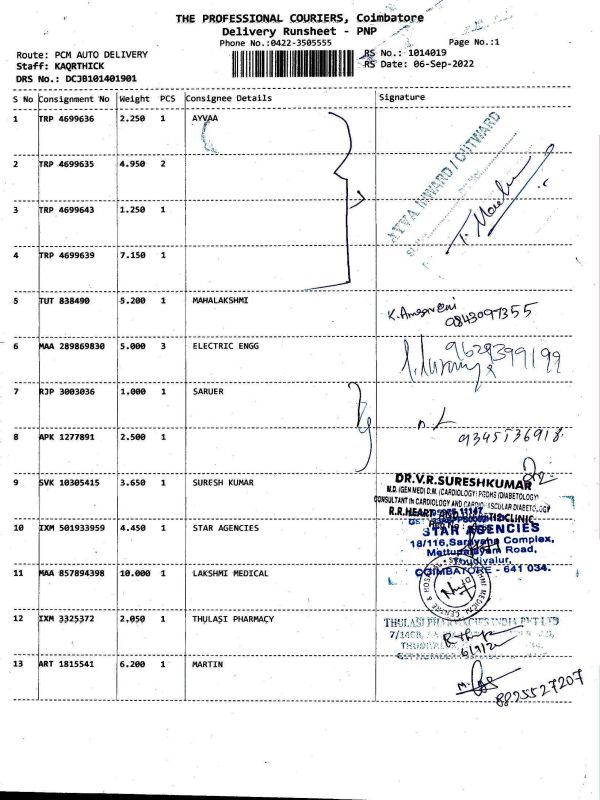 THE PROFESSIONAL COURIERS, Coimbatore
Delivery Runsheet - PNP
Phone No.:0422-3505555
Page No.:1
Route: PCM AUTO DELIVERY
RS No.: 1014019
Staff: KAQRTHICK
RS Date: 06-Sep-2022
DRS No.: DCJB101401901
S No Consignment No Weight PCS Consignee Details Signature
1 TRP 4699636 2.250 1 AYVAA
AYVA INWARD / OUTWARD
2 TRP 4699635 4.950 2
3 TRP 4699643 1.250 1
4 TRP 4699639 7.150 1
5 TUT 838490 5.200 1 MAHALAKSHMI
9843097355
6 MAA 289869830 5.000 3 ELECTRIC ENGG
9629399199
7 RJP 3003036 1.000 1 SARUER
8 APK 1277891 2.500 1
9345136918
9 SVK 10305415 3.650 1 SURESH KUMAR
DR.V.R.SURESHKUMAR
M.D. (GEN MED) D.M. (CARDIOLOGY) PGDHS (DIABETOLOGY)
CONSULTANT IN CARDIOLOGY AND CARDIOVASCULAR DIABETOLOGY
R.R.HEART AND DIABETIC CLINIC
10 IXM 501933959 4.450 1 STAR AGENCIES
STAR AGENCIES
18/116, Saravana Complex,
Mettupalayam Road,
Thudiyalur,
COIMBATORE - 641 034.
11 MAA 857894398 10.000 1 LAKSHMI MEDICAL
12 IXM 3325372 2.050 1 THULASI PHARMACY
THULASI PHARMACIES INDIA PVT LTD
13 ART 1815541 6.200 1 MARTIN
8825527207